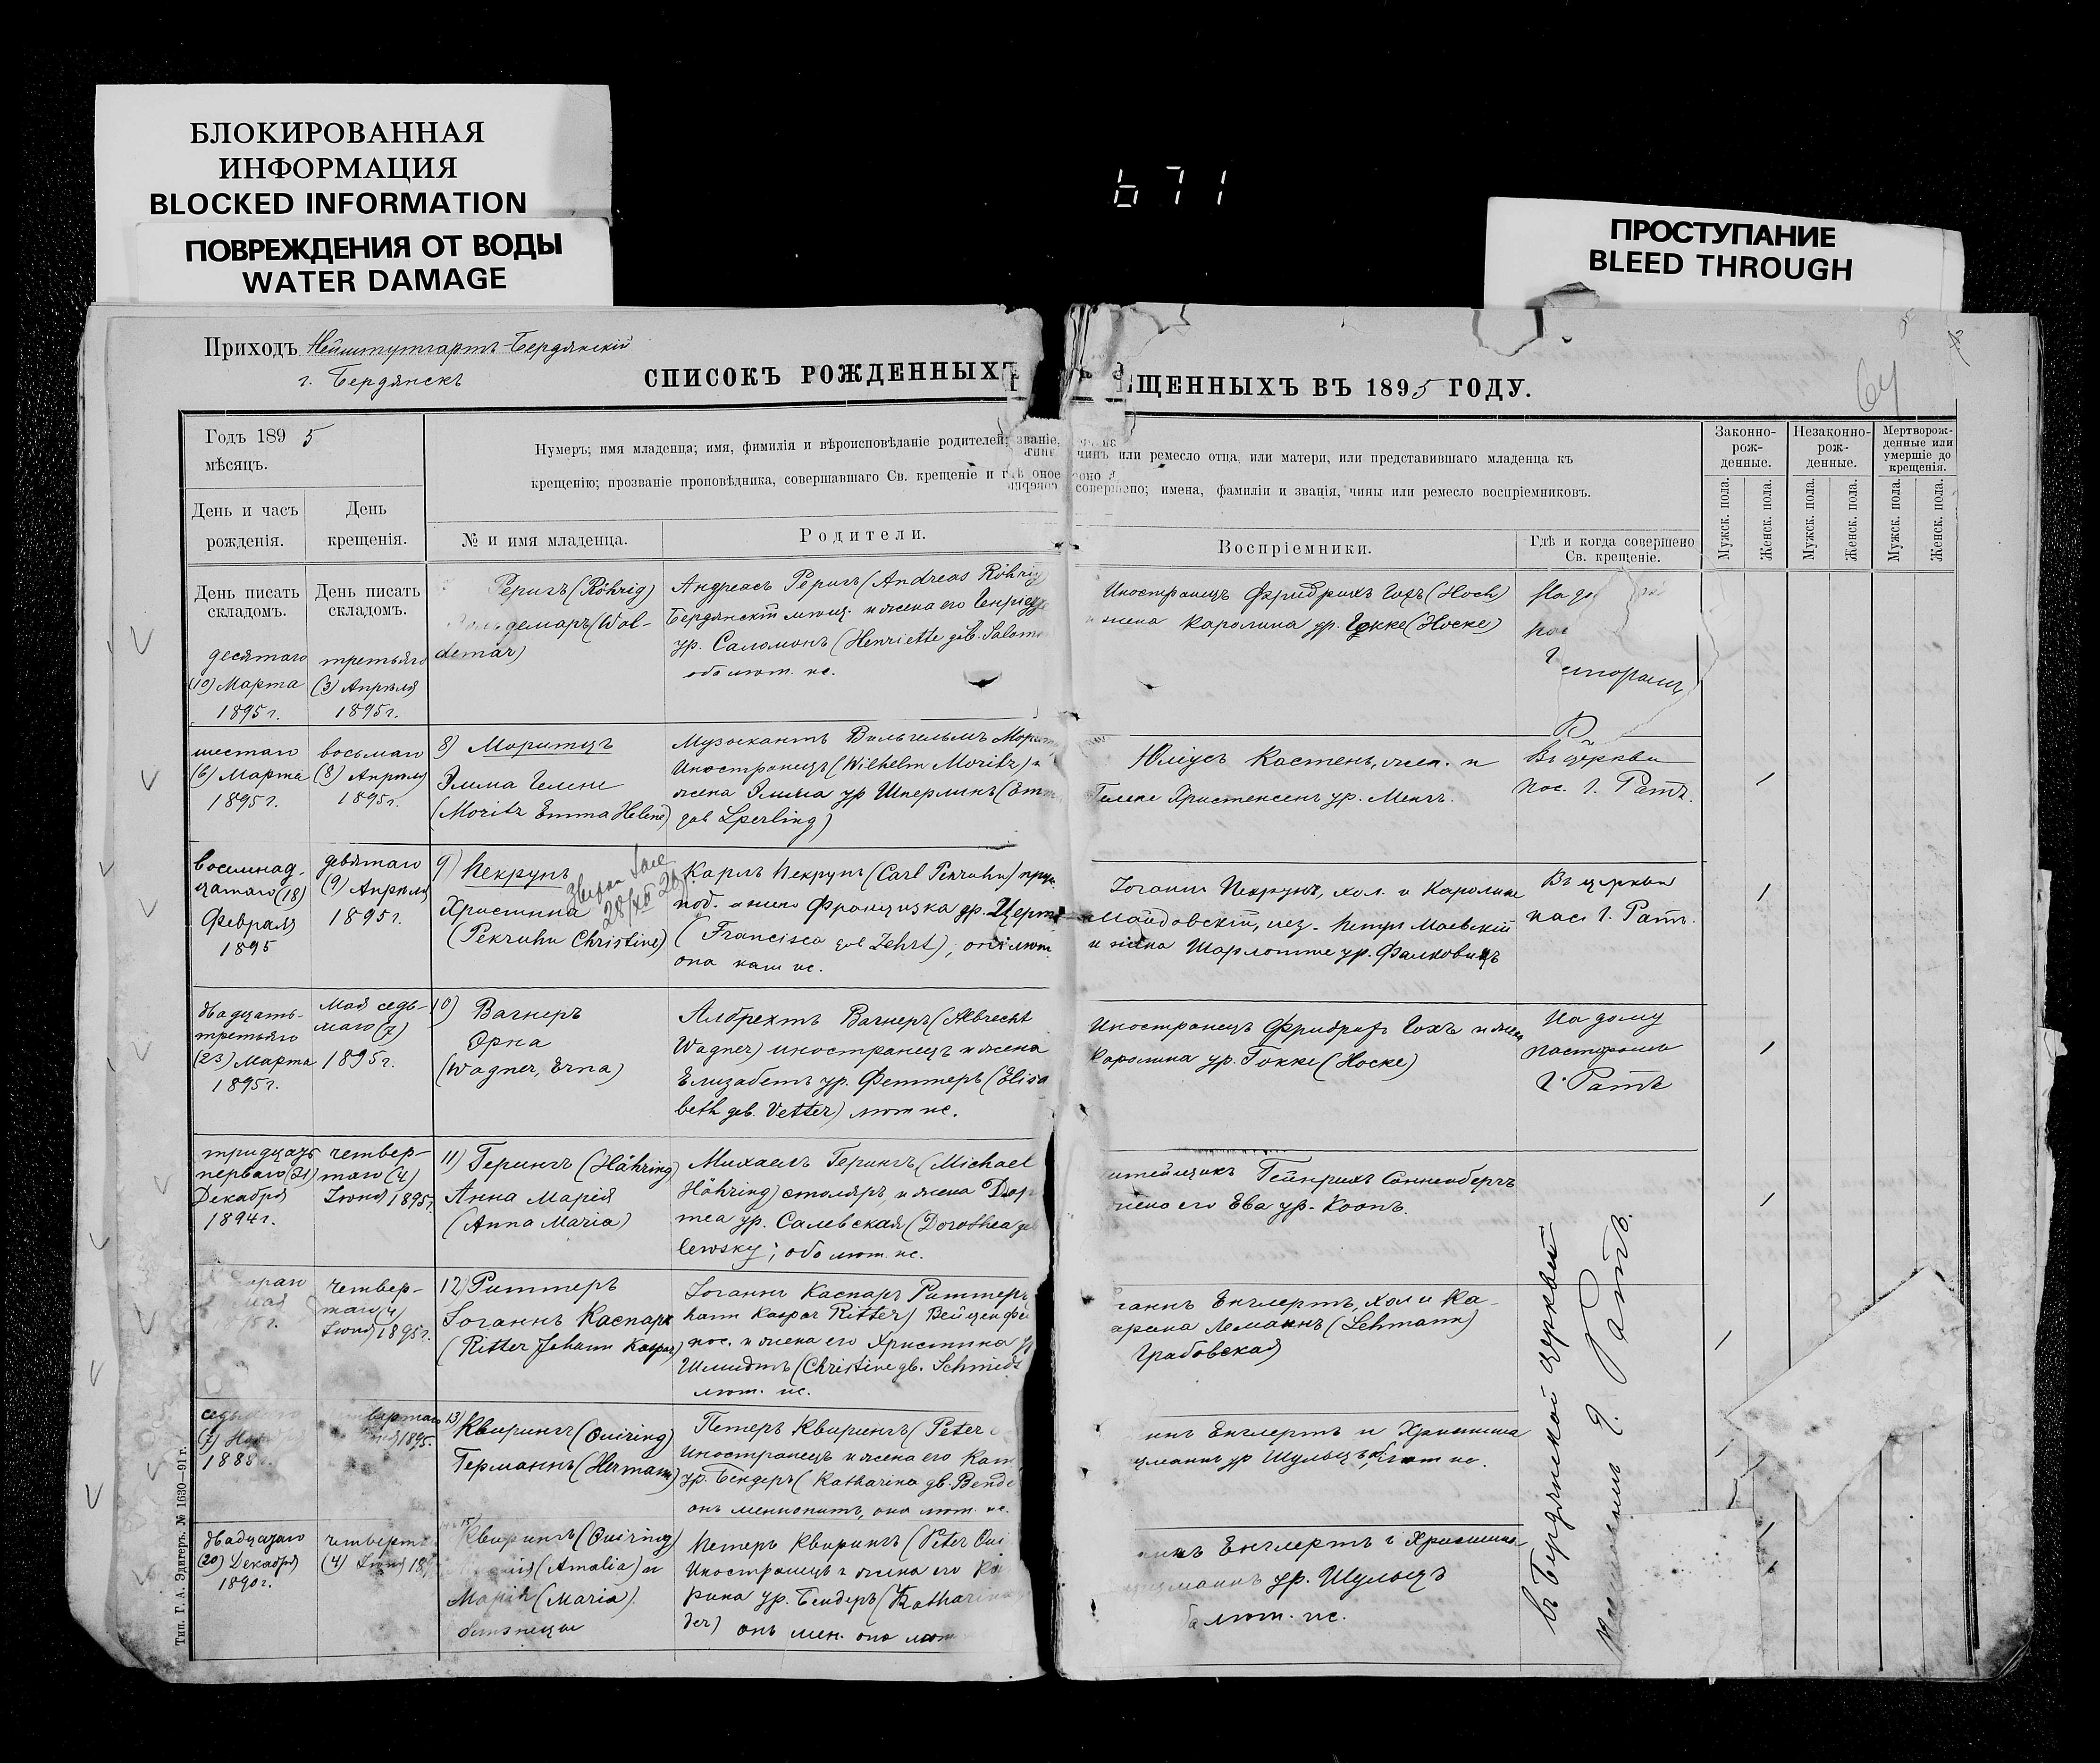 БЛОКИРОВАННАЯ
ИНФОРМАЦИЯ
BLOCKED INFORMATION
ПОВРЕЖДЕНИЯ ОТ ВОДЫ
WATER DAMAGE
671
ПРОСТУПАНИЕ
BLEED THROUGH
64
Приходъ Нейштутгартъ-Бердянскій
г. Бердянскъ
СПИСОКЪ РОЖДЕННЫХЪ
ЩЕННЫХЪ ВЪ 1895 ГОДУ.
Годъ 1895
мѣсяцъ.
Нумеръ; имя младенца; имя, фимилія и вѣроисповѣданіе родителей; званіе,
чинъ или ремесло отца, или матери, или представившаго младенца къ
крещенію; прозваніе проповѣдника, совершавшаго Св. крещеніе и гдѣ оное
совершено; имена, фамиліи и званія, чины или ремесло воспріемниковъ.
День и часъ
рожденія.
День
крещенія.
№ и имя младенца.
Родители.
Воспріемники.
Гдѣ и когда совершено
Св. крещеніе.
Законно-
рож-
денные.
Незаконно-
рож-
денные.
Мертворож-
денные или
умершіе до
крещенія.
Мужск. пола.
Женск. пола.
Мужск. пола.
Женск. пола.
Мужск. пола.
Женск. пола.
День писать
складомъ.
День писать
складомъ.
десятаго
(10) Марта
1895 г.
третьяго
(3) Апрѣля
1895 г.
Реригъ (Röhrig)
демаръ (Wol-
demar)
Андреасъ Реригъ (Andreas Röhrig
Бердянскій мѣщ. и жена его
ур. Саломонъ (Henriette geb.
оба лют. ис.
Иностранецъ Фридрихъ Гохъ (Hoch)
жена Каролина ур. Гокке (Hocke)
На
шестаго
(6) Марта
1895 г.
восьмаго
(8) Апрѣля
1895 г.
8) Моритцъ
Эмма Гелене
(Moritz Emma Helene)
Музыкантъ Вильгельмъ
Иностранецъ (Wilhelm Moritz) и
жена Эмма ур Шперлингъ
geb Sperling)
Юліусъ Кастенъ, и
Гелене Христенсенъ ур. Менгъ.
Въ церкви
пас. Г. Ратъ.
восемнад-
цатаго (18)
Февраля
1895
девятаго
(9) Апрѣля
1895 г.
9) Пекрунъ
Христина
(Pekruhn Christine)
28/XII 26
Карлъ Пекрунъ (Carl Pekruhn)
под. и жена Франциска ур.
(Francisca geb Zehrt), онъ лют.
она кат ис.
Іоганнъ Пекрунъ, хол. и Каролине
Петръ Маевскій
и жена Шарлотте ур. Фалковичъ
Въ церкви
пас. Г. Ратъ.
двадцать-
третьяго
(23) Марта
1895 г.
Мая седь-
маго (7)
1895 г.
10) Вагнеръ
Эрна
(Wagner, Erna)
Албрехтъ Вагнеръ (Albrecht
Wagner) иностранецъ и жена
Елизабетъ ур. Феттеръ (Elisa
beth geb. Vetter) лют ис.
Иностранецъ Фридрихъ Гохъ и жена
Каролина ур. Гокке (Hocke)
На дому
пасторомъ
Г. Ратъ
тридцать
перваго (31)
Декабря
1894 г.
четвер-
таго (4)
Іюня 1895 г.
11) Герингъ (Höhring)
Анна Марія
(Anna Maria)
Михаелъ Герингъ (Michael
Höhring) столяръ, и жена Доро
теа ур. Салевская (Dorothea
lewsky; оба лют. ис.
Гейнрихъ Сонненбергъ
жена его Ева ур. Коопъ.
четвер-
таго (4)
Іюня 1895 г.
12) Риттеръ
Іоганнъ Каспаръ
(Ritter Johann Kaspar)
Іоганнъ Каспаръ Риттеръ
hann Kaspar Ritter)
пос. и жена его Христина
Шмидтъ (Christine gb. Schmidt
лют. ис.
Енглертъ, хол и Ка-
Леманнъ (Lehmann)
Грабовская
(7)
1895.
13) Квирингъ (Quiring)
Германнъ (Hermann)
Петеръ Квирингъ (Peter
иностранецъ и жена его
ур. Бендеръ (Katharina gb. Bende
онъ менонитъ, она лют. ис.
Енглертъ и Христина
ур Шульцъ, ис.
двадцатаго
(20) Декабря
1890 г.
(4) Іюня
Квирингъ (Quiring)
(Amalia) и
Марія (Maria)
близнецы
Петеръ Квирингъ (Peter Qui
Иностранецъ и жена его
рина ур. Бендеръ (Katharina
der) онъ мен. она лют
Енглертъ и Христина
ур. Шульцъ
лют. ис.
въ Бердянской церкви
Г. Ратъ.
Тип. Г. А. Эдигеръ. № 1630—91 г.